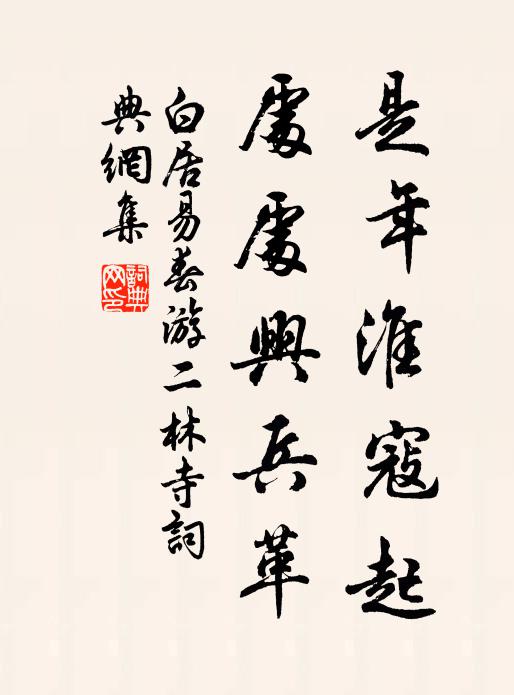 是年淮寇起
處處興兵革
白居易春游二林寺詞
典網集
詞典
网印